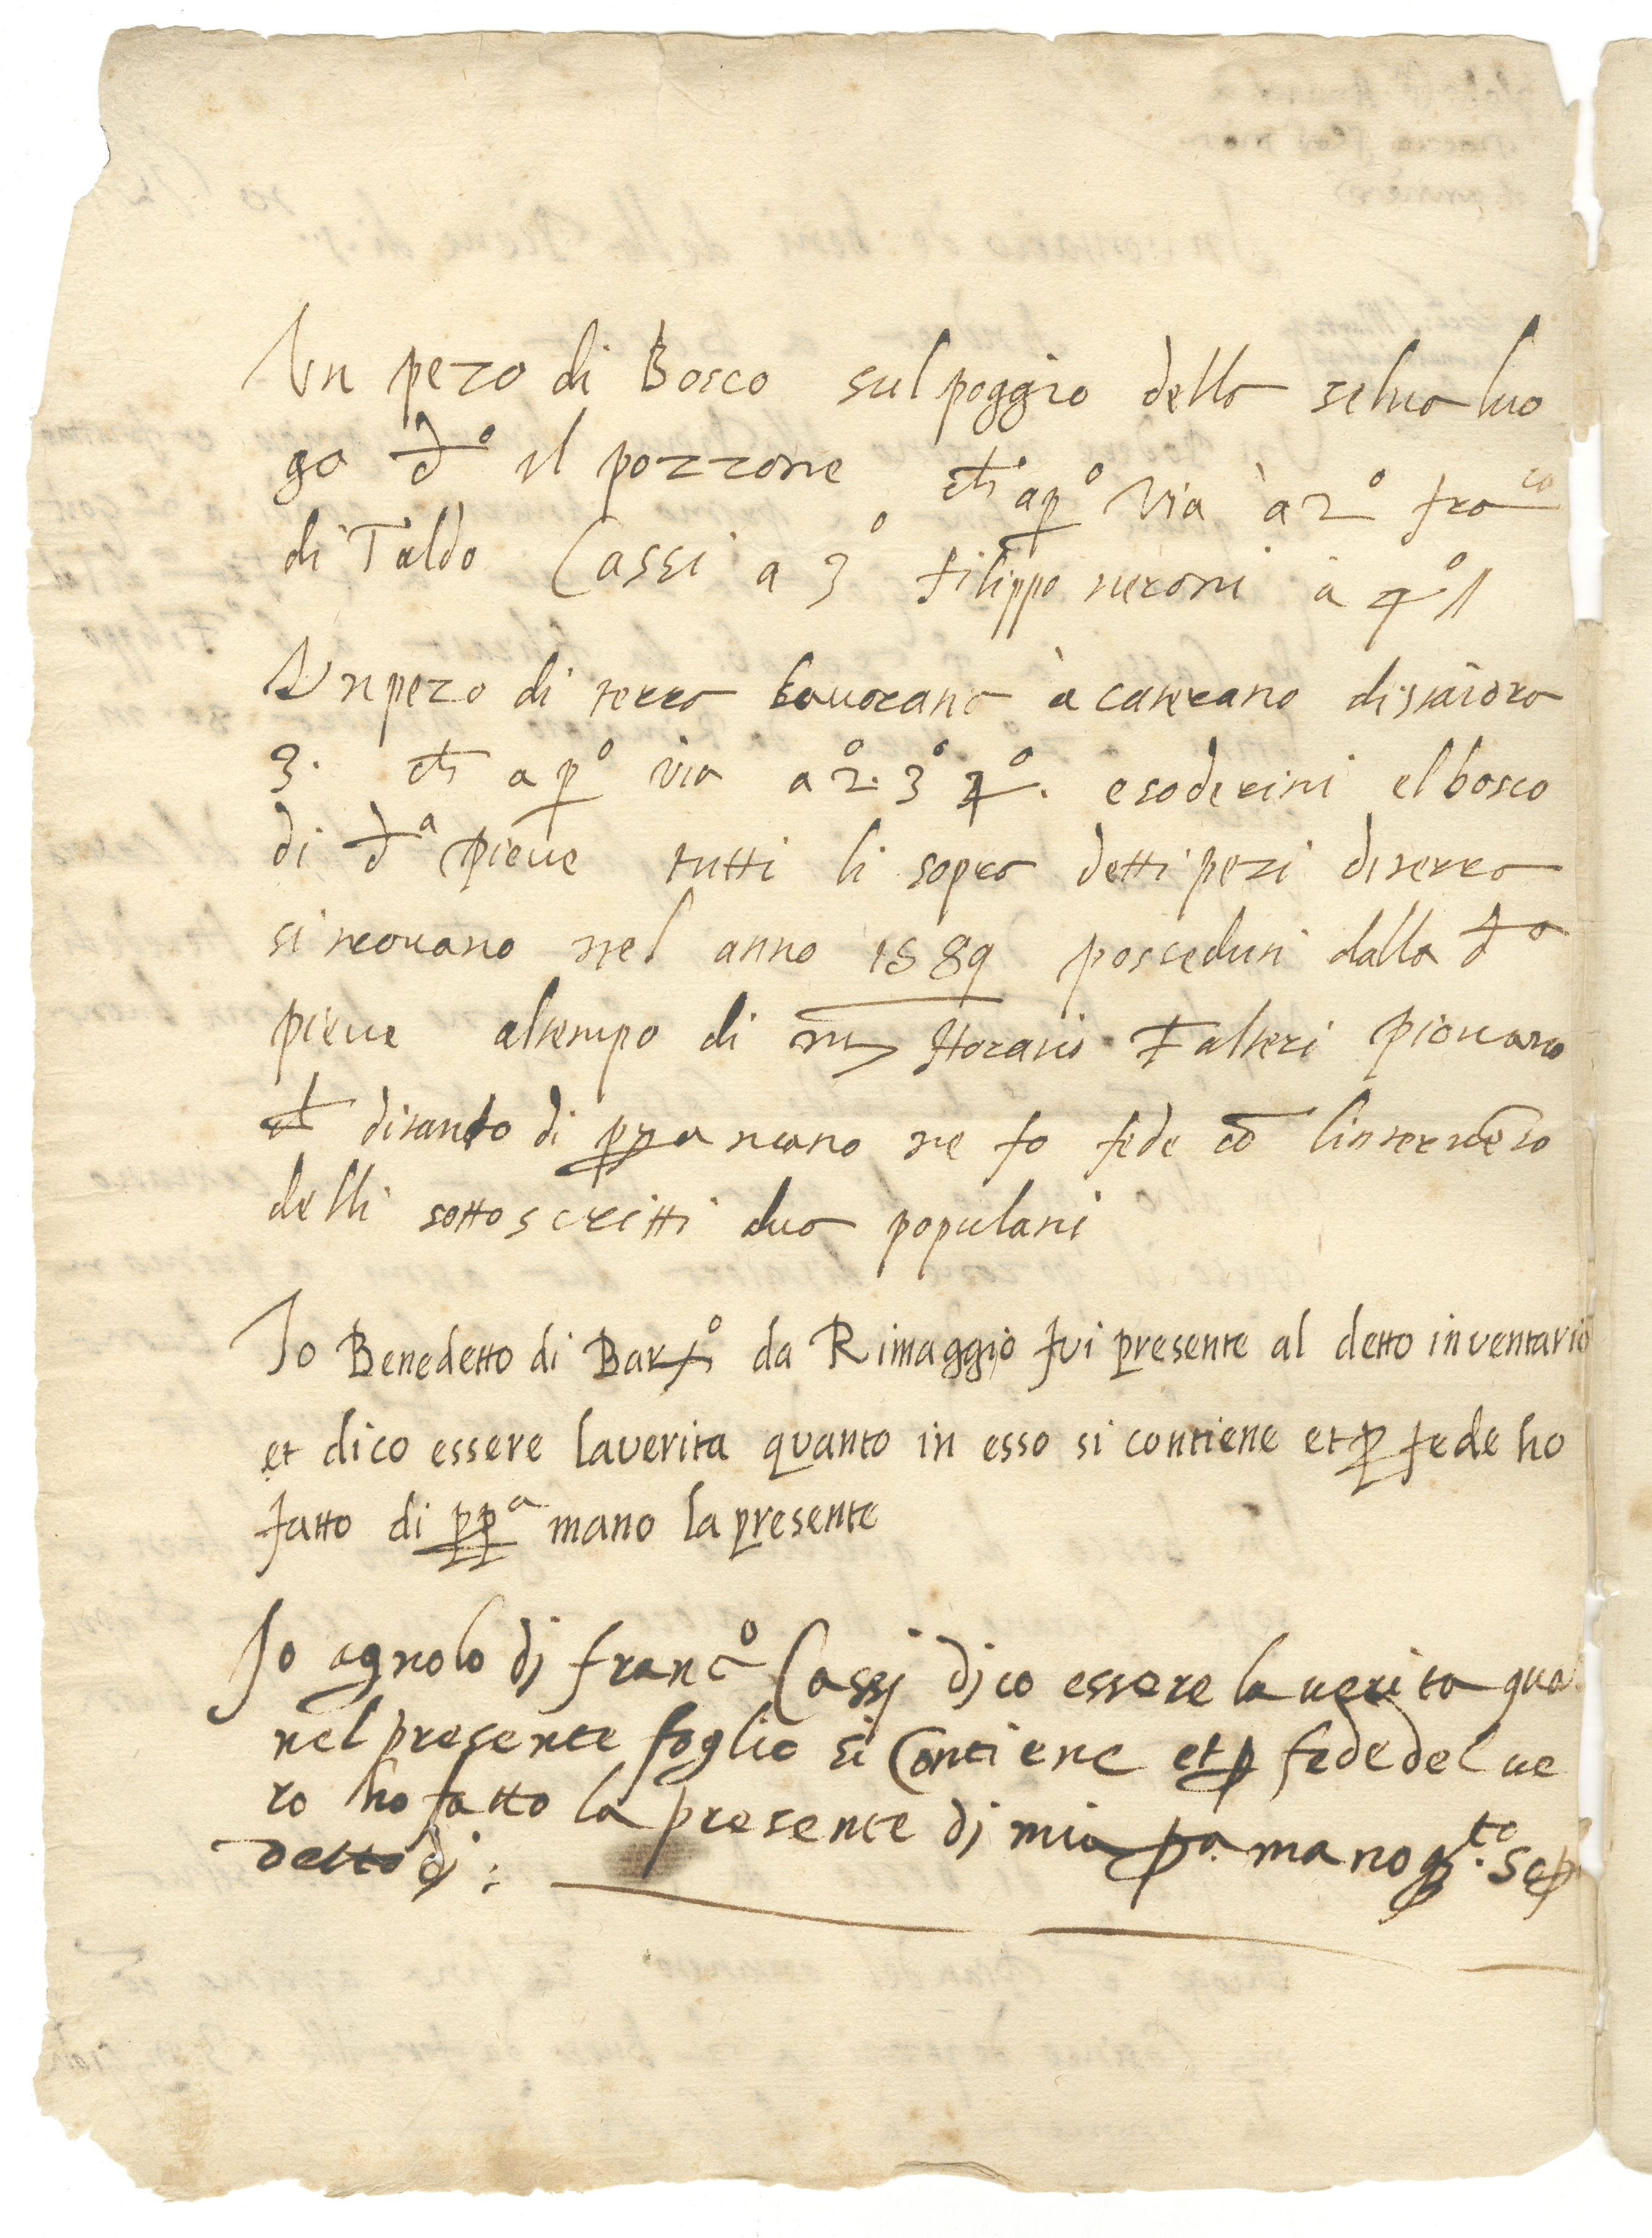 Un pezo di Bosco sul poggio della selva luo
go d.º il pozzone cfi a pº via à 2º fraco
di Taldo Cassi a 3º filippo neroni à 4º
Un pezo di terra lavorana à caterano distaiora
3. cfi a pº via a 2º. 3º 4º. e soderini el bosco
di dª pieve tutti li sopra detti pezi di terra
si trovano nel anno 1589 posseduti dalla dª
pieve al tempo di m Horatio Falteri piovano
di ppa mano ne fo fede cō lintervēto
delli sottoscritti dua populani
Io Benedetto di Bartº da Rimaggio fui presente al detto inventario
et dico essere la verita quanto in esso si contiene et p fede ho
fatto di ppª mano la presente
Io agnolo di francº Cassj dico essere la verita qua
nel presente foglio si Contiene et p fede del ve
ro ho fatto la presente dj mia pa. mano
detto dj: